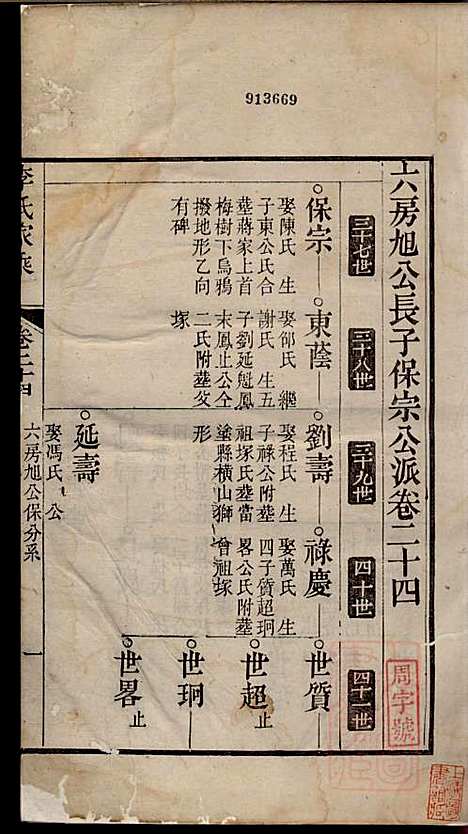 913669
六房旭公長子保宗公派卷二十四
三十七世
三十八世
三十九世
四十世
四十一世
周字號
保宗
娶陳氏 生
子東公氏合
塟蔣家上首
梅樹下烏鴉
撥地形乙向
有碑
東蔭
娶邵氏 繼
謝氏 生五
子劉延魁鳳
末鳳止公仝
二氏附塟父
塚
劉壽
娶程氏 生
子祿公附塟
祖塚氏塟當
塗縣橫山獅
形
祿慶
娶萬氏 生
四子質超珂
畧公氏附塟
曾祖塚
世質
世超 止
世珂
世畧 止
延壽
娶馮氏 公
李氏家乘
卷二十四
六房旭公保分系
一